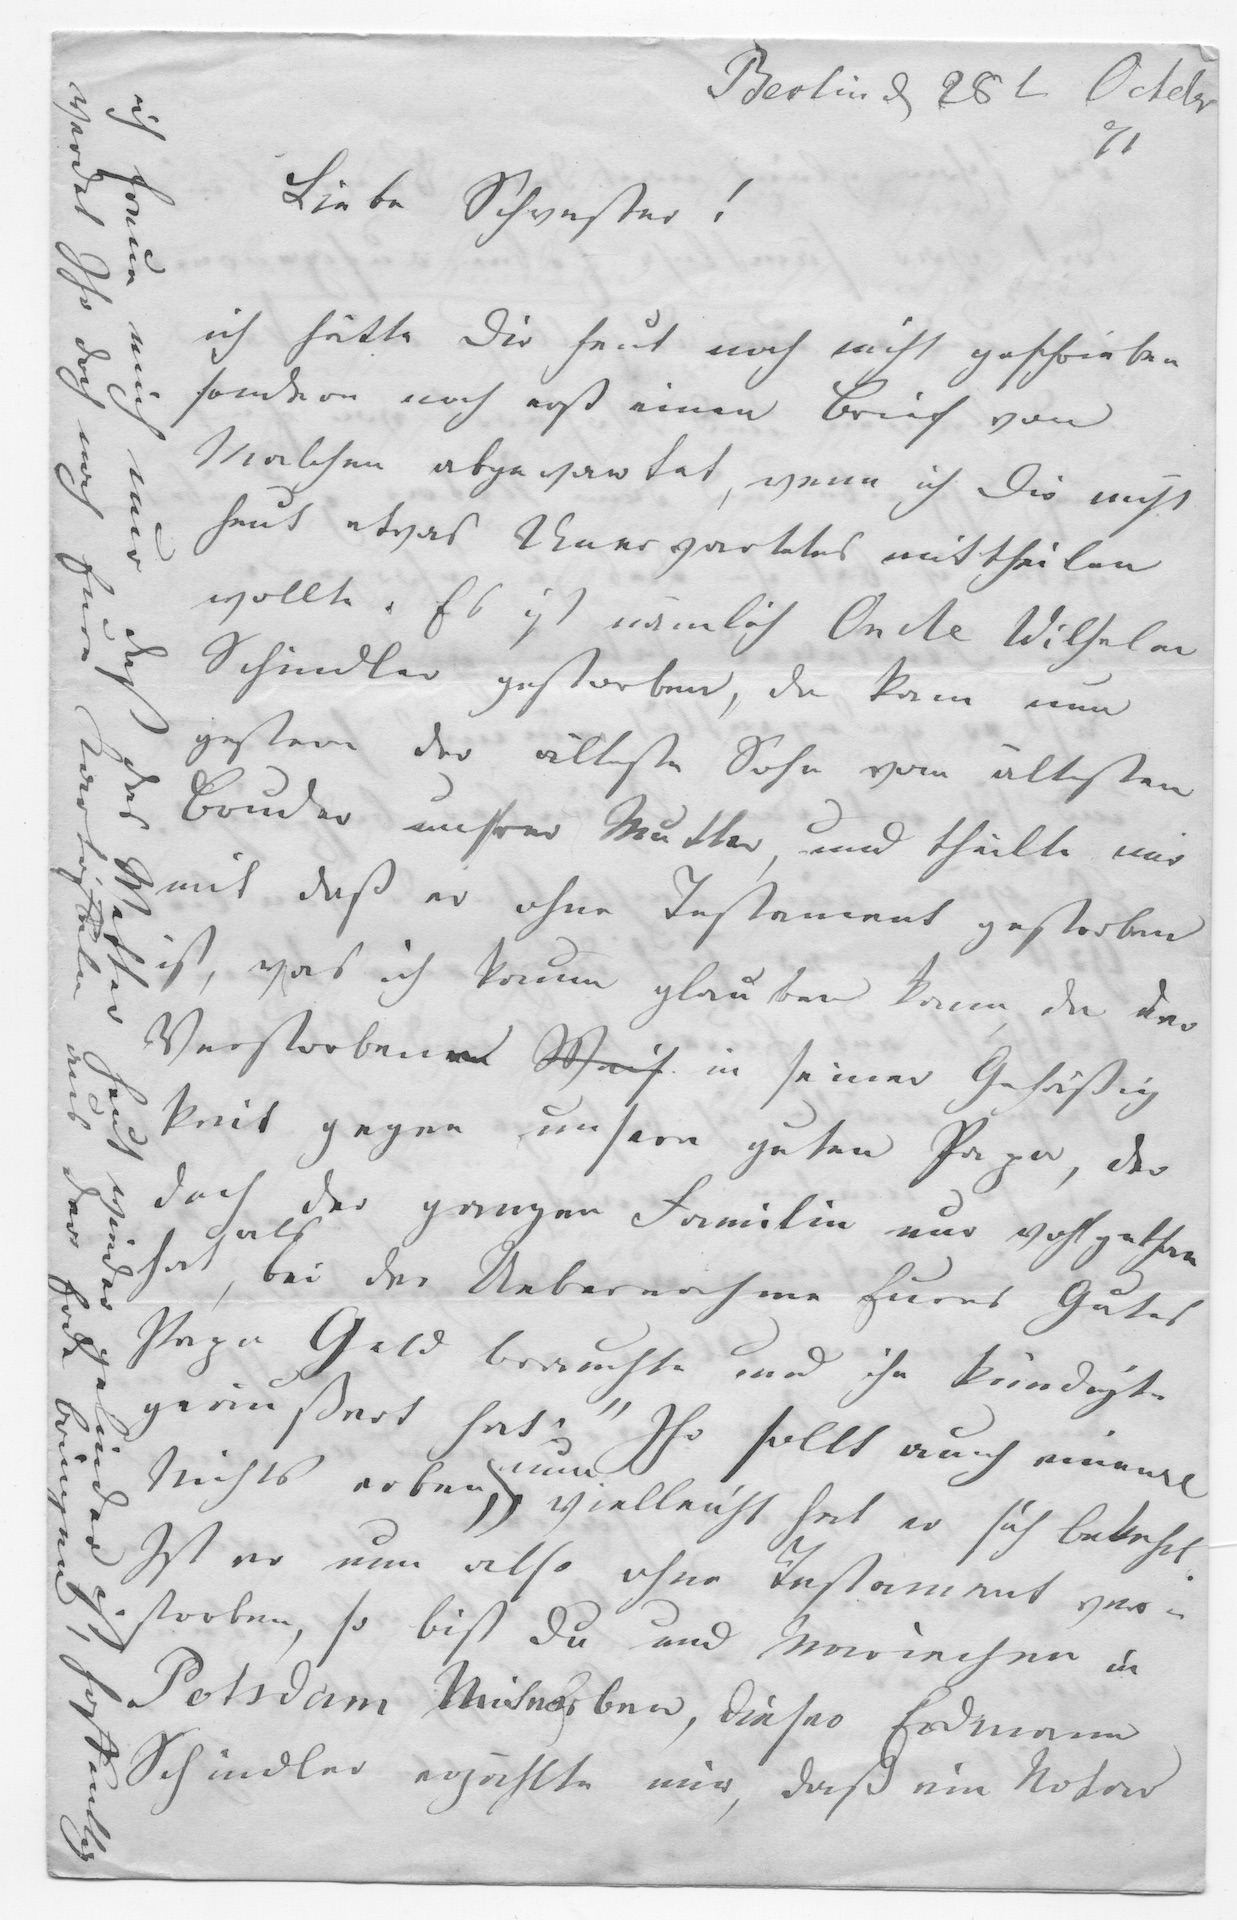 Berlin d 28t October
71
Liebe Schwester!
ich hätte Dir heut noch nicht geschrieben
sondern noch erst einen Brief von
Malchen abgewartet, wenn ich Dir nicht
heut etwas Unerwartetes mittheilen
wollte. Es ist nämlich Oncle Wilhelm
Schindler gestorben, da kam nun
gestern der älteste Sohn vom ältesten
Bruder unsrer Mutter, und theilte mir
mit daß er ohne Testament gestorben
ist, was ich kaum glauben kann, da der
Verstorbene in seiner Gehäßig
keit gegen unsern guten Papa, der
doch der ganzen Familie nur wohlgethan
hat, als bei der Uebernahme Eures Gutes
Papa Geld brauchte und ihn kündigte
geäußert hat: "Ihr sollt auch einmal
Nichts erben," nun vielleicht hat er sich bekehrt.
Ist er nun also ohne Testament ver=
storben, so bist Du und Mariechen in
Potsdam Miterben, dieser Erdmann
Schindler erzählte mir, daß ein Notar
ich freue mich nur daß das Wetter heut wieder gelinder ist, hoffentlich
werdet Ihr doch noch Eure Kartoffeln aus der Erde bringen,